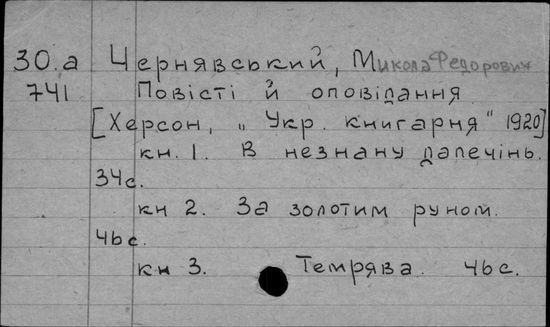 30.а Чернявський, Микола Федорович
741 Повісті й оповідання.
[Херсон, „Укр. книгарня" 1920]
кн. 1. В незнану далечінь.
34с.
кн 2. За золотим руном.
46с.
кн 3. Темрява. 46с.